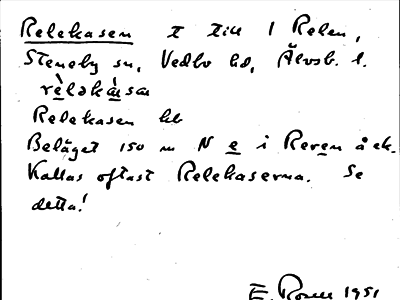 Relekasen t till 1 Relen,
Steneby sn, Vedbo hd, Älvsb. l.
rèləkàsa
Relekasen kb
Beläget 150 m N e i Reven å ek.
Kallas oftast Relekaserna. Se
detta!
E. Rosell 1951